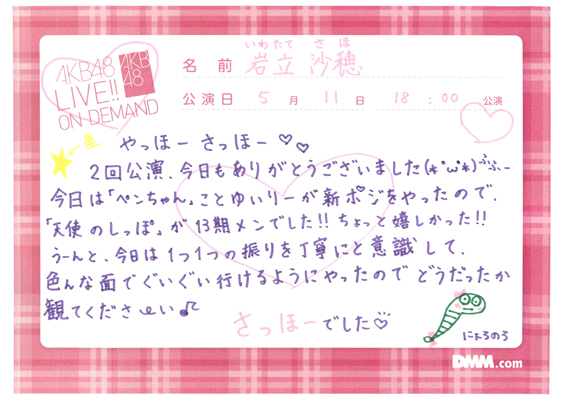 AKB48
LIVE!!
ON DEMAND
AKB
48
いわたて さほ
名前 岩立 沙穂
公演日 5月 11日 18:00 公演
←星
やっほー さっほー♡♡
2回公演、今日もありがとうございました(*'ω'*)ふふー
今日は「ペンちゃん」ことゆいりーが新ポジをやったので、
「天使のしっぽ」が13期メンでした!!ちょっと嬉しかった!!
うーんと、今日は1つ1つの振りを丁寧にと意識して、
色んな面でぐいぐい行けるようにやったのでどうだったか
観てくださーい♪
さっほーでした♡
にょろのろ
DMM.com